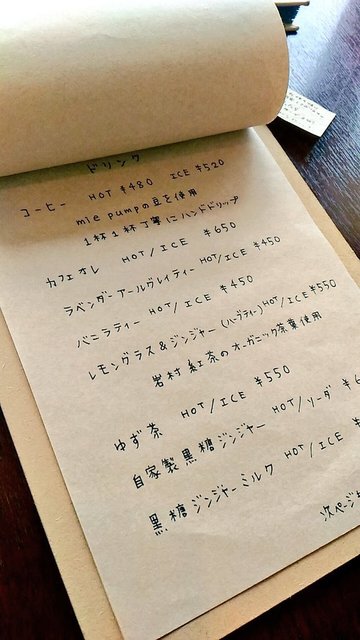 ドリンク
コーヒー HOT ¥480 ICE ¥520
mie pumpの豆を使用
1杯1杯丁寧にハンドドリップ
カフェオレ HOT/ICE ¥650
ラベンダーアールグレイティー HOT/ICE ¥450
バニラティー HOT/ICE ¥450
レモングラス&ジンジャー(ハーブティー) HOT/ICE ¥550
岩村紅茶のオーガニック茶葉使用
ゆず茶 HOT/ICE ¥550
自家製黒糖ジンジャー HOT/ソーダ ¥6
黒糖ジンジャーミルク HOT/ICE ¥
次ページ